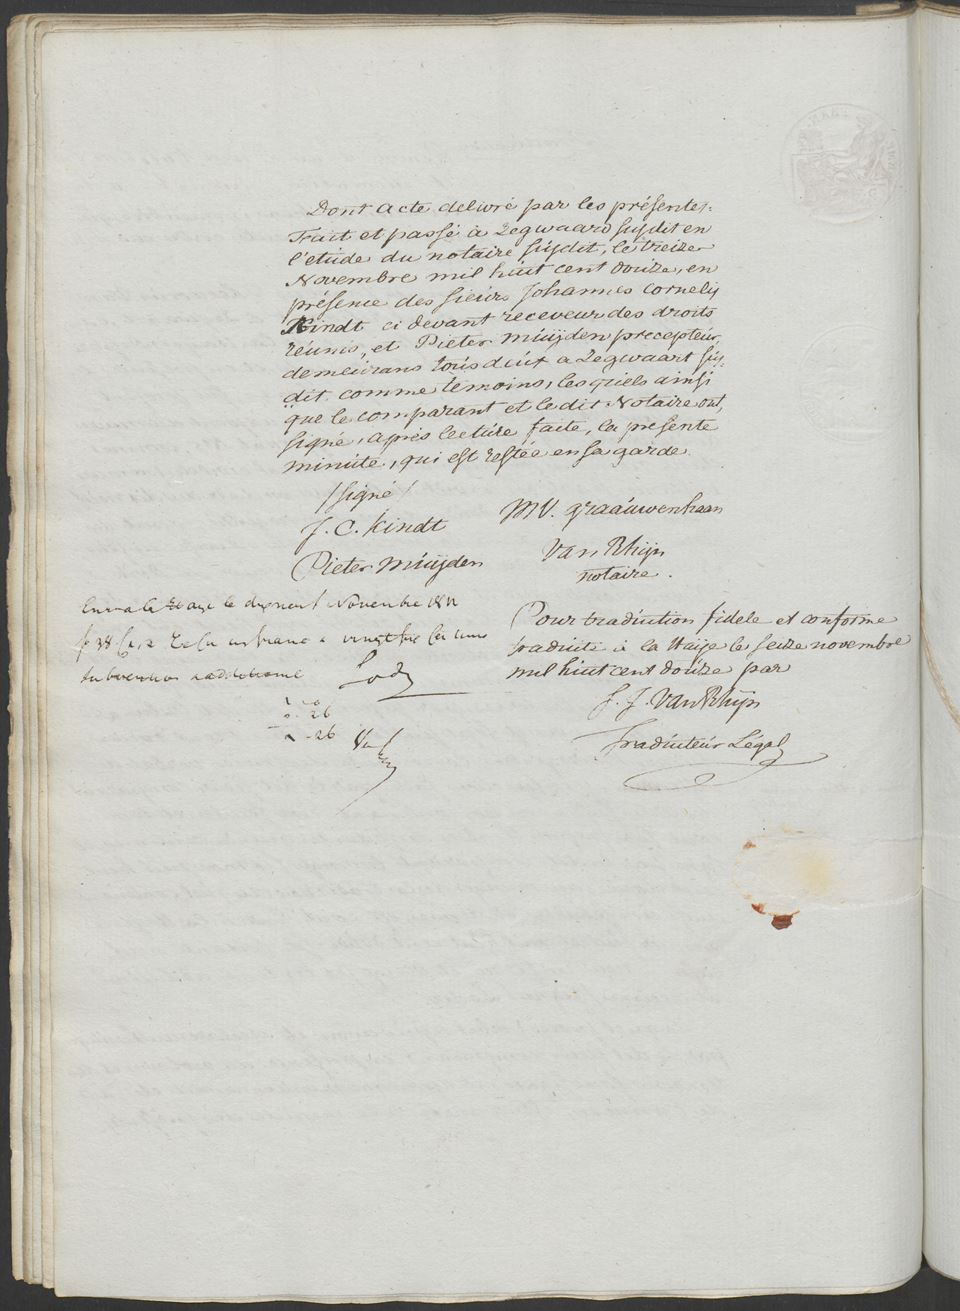 Dont acte delivré par les présentes.
Fait et passé à Zegwaard susdit en
l'etude du notaire susdit, le treize
Novembre mil huit cent douze, en
présence des sieurs Johannes Cornelis
Kindt ci devant receveur des droits
réunis, et Pieter Muijden precepteur,
demeurans tous deux a Zegwaart sus
dit comme témoins, lesquels ainsi
que le comparant et le dit Notaire ont,
signé, après lecture faite, la présente
minute, qui est restée en sa garde
/signé/
J. C. Kindt
MV. Graauwenhaan
Pieter Muijden
Van Rhijn
notaire.
la Haye le Novembre 181
f 38 un franc vingt six
subvention additionnel
26
26
Pour traduction fidele et conforme
traduite à la Haije le seize novembre
mil huit cent douze par
J. J. Van Rhijn
Traducteur Légal